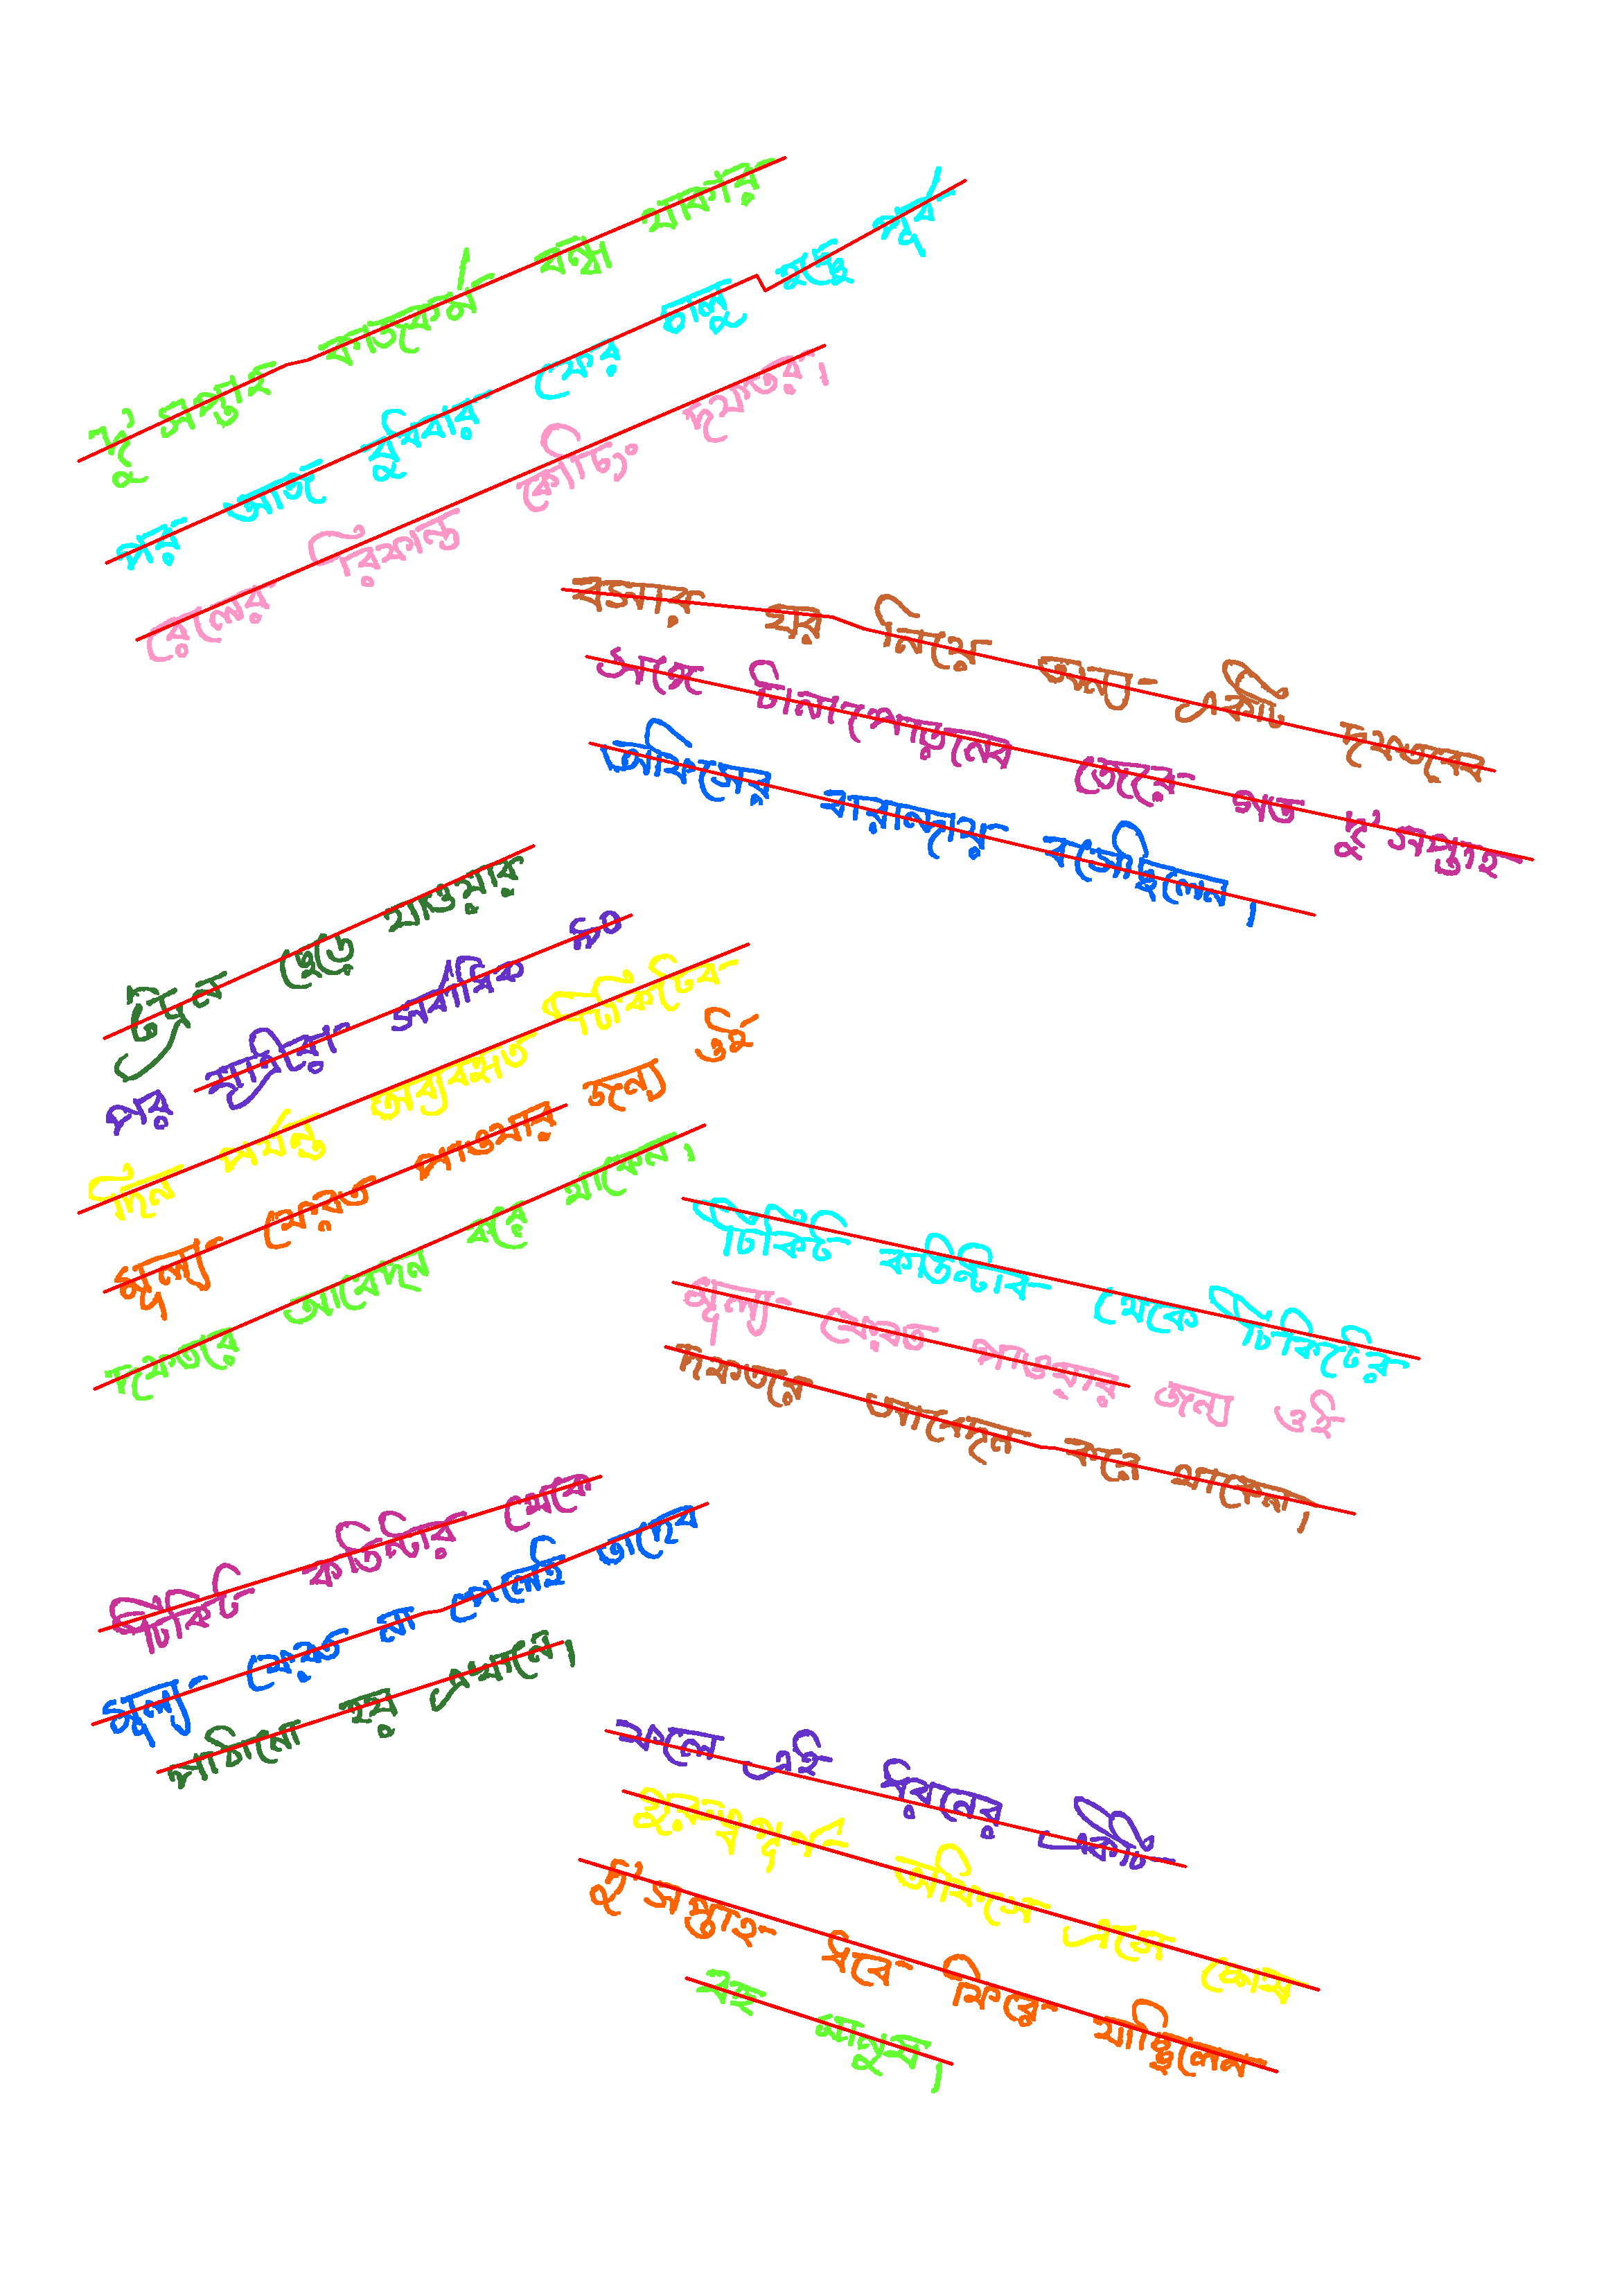 দু'সপ্তাহ কাজকর্ম বন্ধ থাকার
পর আজ বুধবার ফের চালু হচ্ছে পূর্ব
রেলের রিফান্ড কোচিং দফতর।
বসার ঘর নিয়ে অন্য একটি দফতরের
সঙ্গে টানাপোড়েনের জেরে গত দু'সপ্তাহ
অফিসের বারান্দায় বসেছিলেন।
ট্রেন ছেড়ে যাওয়ার
পর যাত্রীরা সর্বাধিক ৯০
দিন পর্যন্ত অব্যবহৃত টিকিটের
মূল্য ফেরত পাওয়ার জন্য ওই
দফতরে আবেদন করে থাকেন।
টিকিট কাউন্টার থেকে টিকিটের
মূল্য ফেরত পাওয়ার জন্য ওই
দফতরে আবেদন করে থাকেন।
টিকিট কাউন্টার থেকে
মূল্য ফেরত না পেলেই তাদের
পাঠানো হয় এখানে।
ফলে এই ধরনের একটি
গুরুত্বপূর্ণ অফিসে এসে
দু'সপ্তাহ ধরে ফিরে যাচ্ছিলেন
বহু মানুষ।